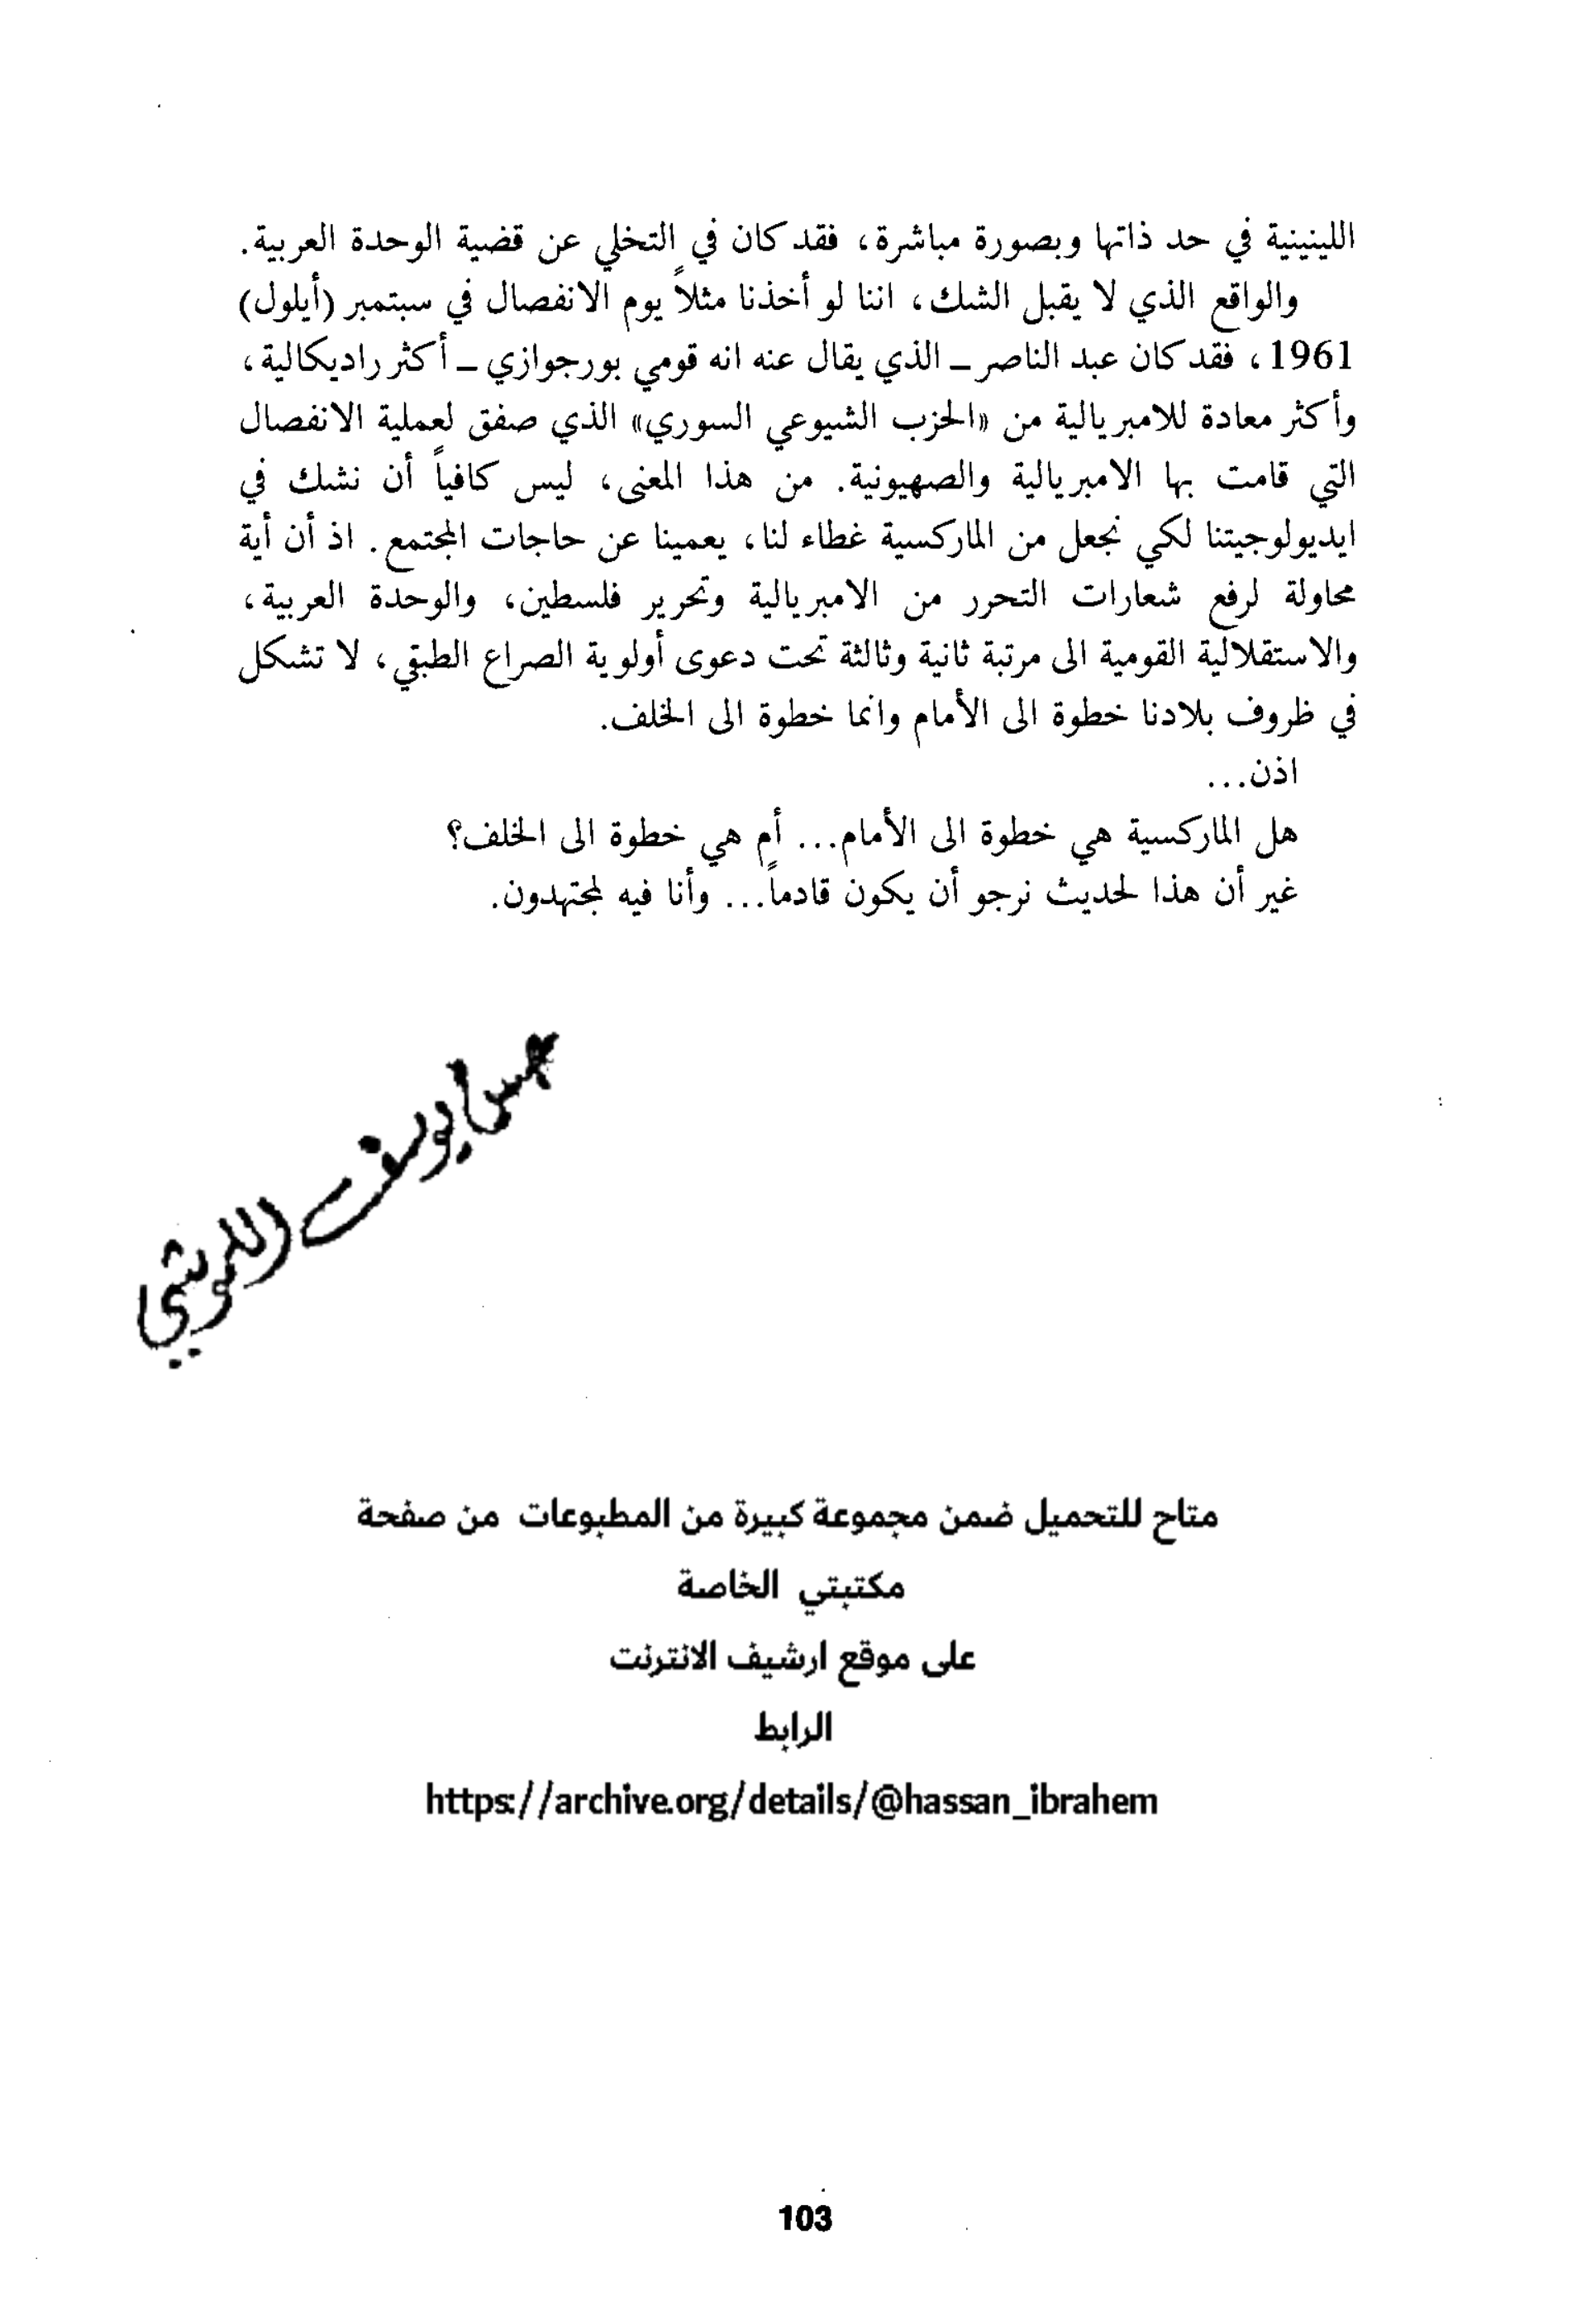 اللينينية في حد ذاتها وبصورة مباشرة، فقد كان في التخلي عن قضية الوحدة العربية.
والواقع الذي لا يقبل الشك، اننا لو أخذنا مثلاً يوم الانفصال في سبتمبر (أيلول)
1961، فقد كان عبد الناصر ـ الذي يقال عنه انه قومي بورجوازي ـ أكثر راديكالية،
وأكثر معادة للامبريالية من «الحزب الشيوعي السوري» الذي صفق لعملية الانفصال
التي قامت بها الامبريالية والصهيونية. من هذا المعنى، ليس كافياً أن نشك في
ايديولوجيتنا لكي نجعل من الماركسية غطاء لنا، يعمينا عن حاجات المجتمع. اذ أن أية
محاولة لرفع شعارات التحرر من الامبريالية وتحرير فلسطين، والوحدة العربية،
والاستقلالية القومية الى مرتبة ثانية وثالثة تحت دعوى أولوية الصراع الطبقي، لا تشكل
في ظروف بلادنا خطوة الى الأمام وانما خطوة الى الخلف.
اذن...
هل الماركسية هي خطوة الى الأمام... أم هي خطوة الى الخلف؟
غير أن هذا لحديث نرجو أن يكون قادماً... وأنا فيه لمجتهدون.
يوسف
متاح للتحميل ضمن مجموعة كبيرة من المطبوعات من صفحة
مكتبتي الخاصة
على موقع ارشيف الانترنت
الرابط
https://archive.org/details/@hassan_ibrahem
103